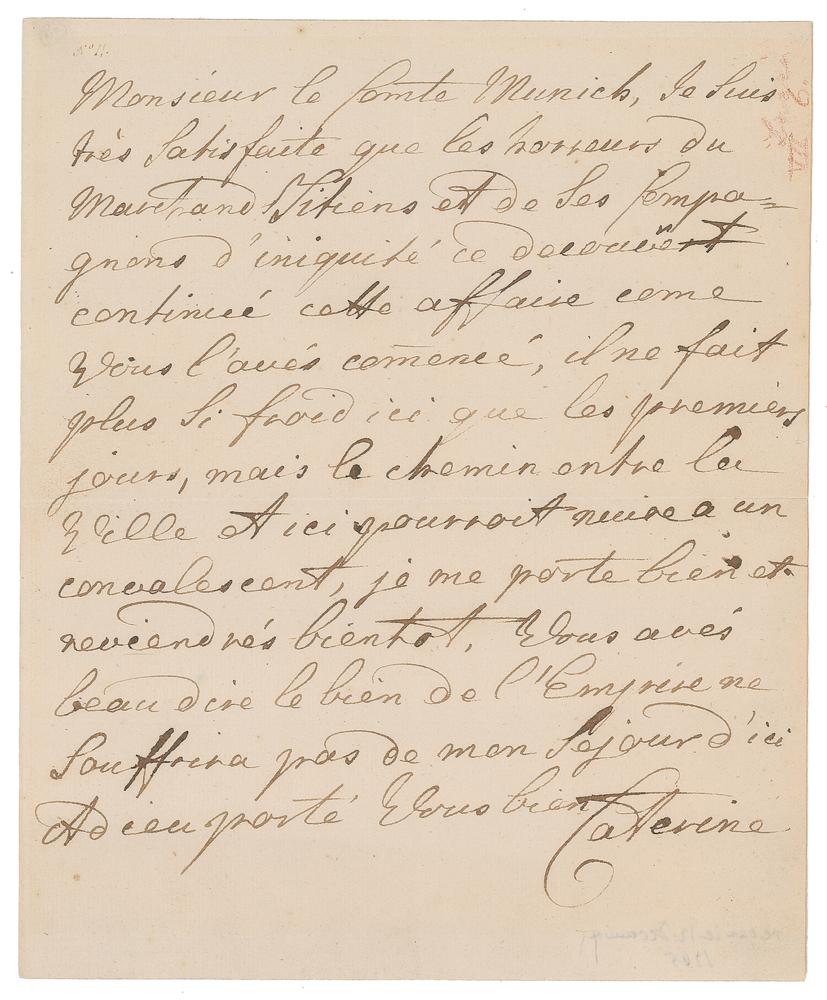 No 11.
Monsieur le Comte Munich, Je Suis
trés Satisfaite que les horreurs du
Marchand Sitiens et de Ses Compa=
gnons d'iniquité ce decouvert
continué cette affaire come
Vous l'avés comencé, il ne fait
plus Si froid ici que les premiers
jours, mais le chemin entre la
Ville et ici pourroit nuire a un
convalescent, je me porte bien et
reviendrés bientot, Vous avés
beau dire le bien de l'Empire ne
Souffrira pas de mon Sejour d'ici
Adieu porté Vous bien
Caterine